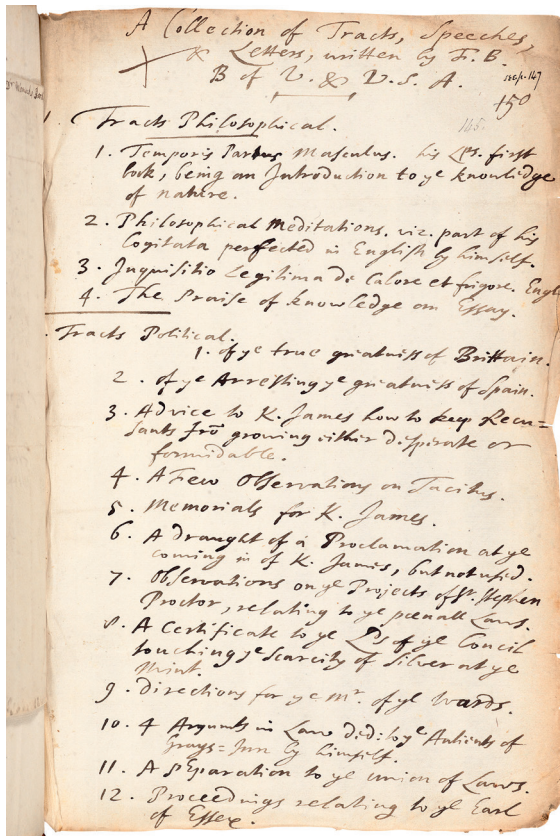 A Collection of Tracts, Speeches,
& Letters, written by F. B.
B of V. & V. S. A.
150
165
1. Tracts Philosophical.
1. Temporis Partus Masculus. his Lps. first
book, being an Introduction to ye knowledge
of nature.
2. Philosophical Meditations. viz. part of his
Cogitata perfected in English by himself.
3. Inquisitio Legitima de Calore et frigore. Engl
4. The Praise of knowledge an Essay.
Tracts Political.
1. of ye true greatness of Brittain.
2. of ye Arresting ye greatness of Spain.
3. Advice to K. James how to keep Recu=
sants frō growing either desperate or
formidable.
4. A Few Observations on Tacitus.
5. Memorials for K. James.
6. A draught of a Proclamation at ye
coming in of K. James, but not used.
7. Observations on ye Projects of Sr. Stephen
Proctor, relating to ye poenall Laws.
8. A Certificate to ye Lps of ye Concil
touching ye scarcity of silver at ye
Mint.
9. directions for ye Mr. of ye Wards.
10. 4 Argumts in Law ded: to ye Antients of
Grays=Inn by himself.
11. A pReparation to ye union of Laws.
12. Proceedings relating to ye Earl
of Essex.